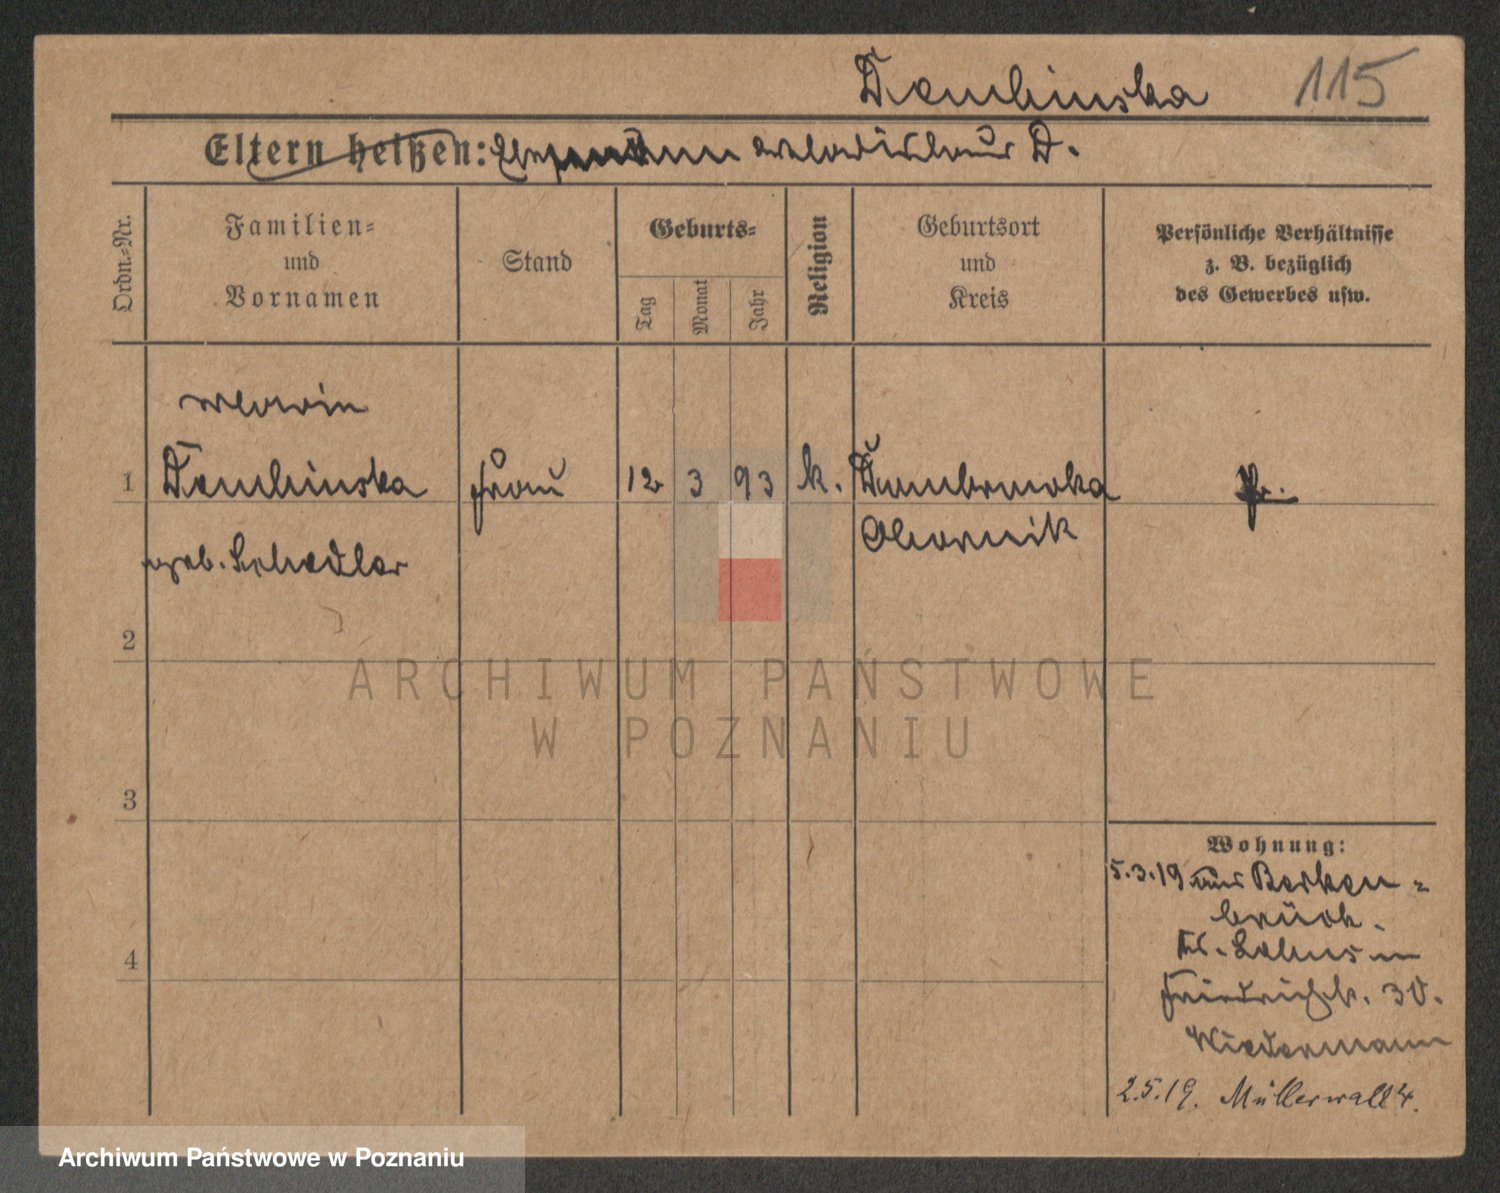 Dembinska 115
Eltern heißen: Ehemann Wladislaus D.
Ordn.-Nr.
Familien-
und
Vornamen
Stand
Geburts-
Tag
Monat
Jahr
Religion
Geburtsort
und
Kreis
Persönliche Verhältnisse
z. B. bezüglich
des Gewerbes usw.
1
Dembinska
geb. Schedler
Frau
12 3 93
k.
Obornik
Pr.
2
3
4
Wohnung:
5.3.19 aus Berken-
brück.
Friedrichstr. 30.
Wiedermann
2.5.19. Müllerwall 4.
ARCHIWUM PAŃSTWOWE
W POZNANIU
Archiwum Państwowe w Poznaniu